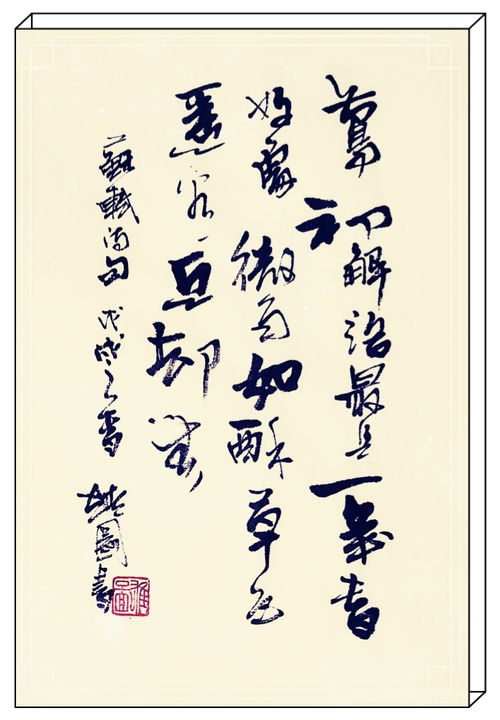 鶯初解語最是一年春
好處微雨如酥草色
遥看近却無
蘇軾詩句 戊戌之春 國書